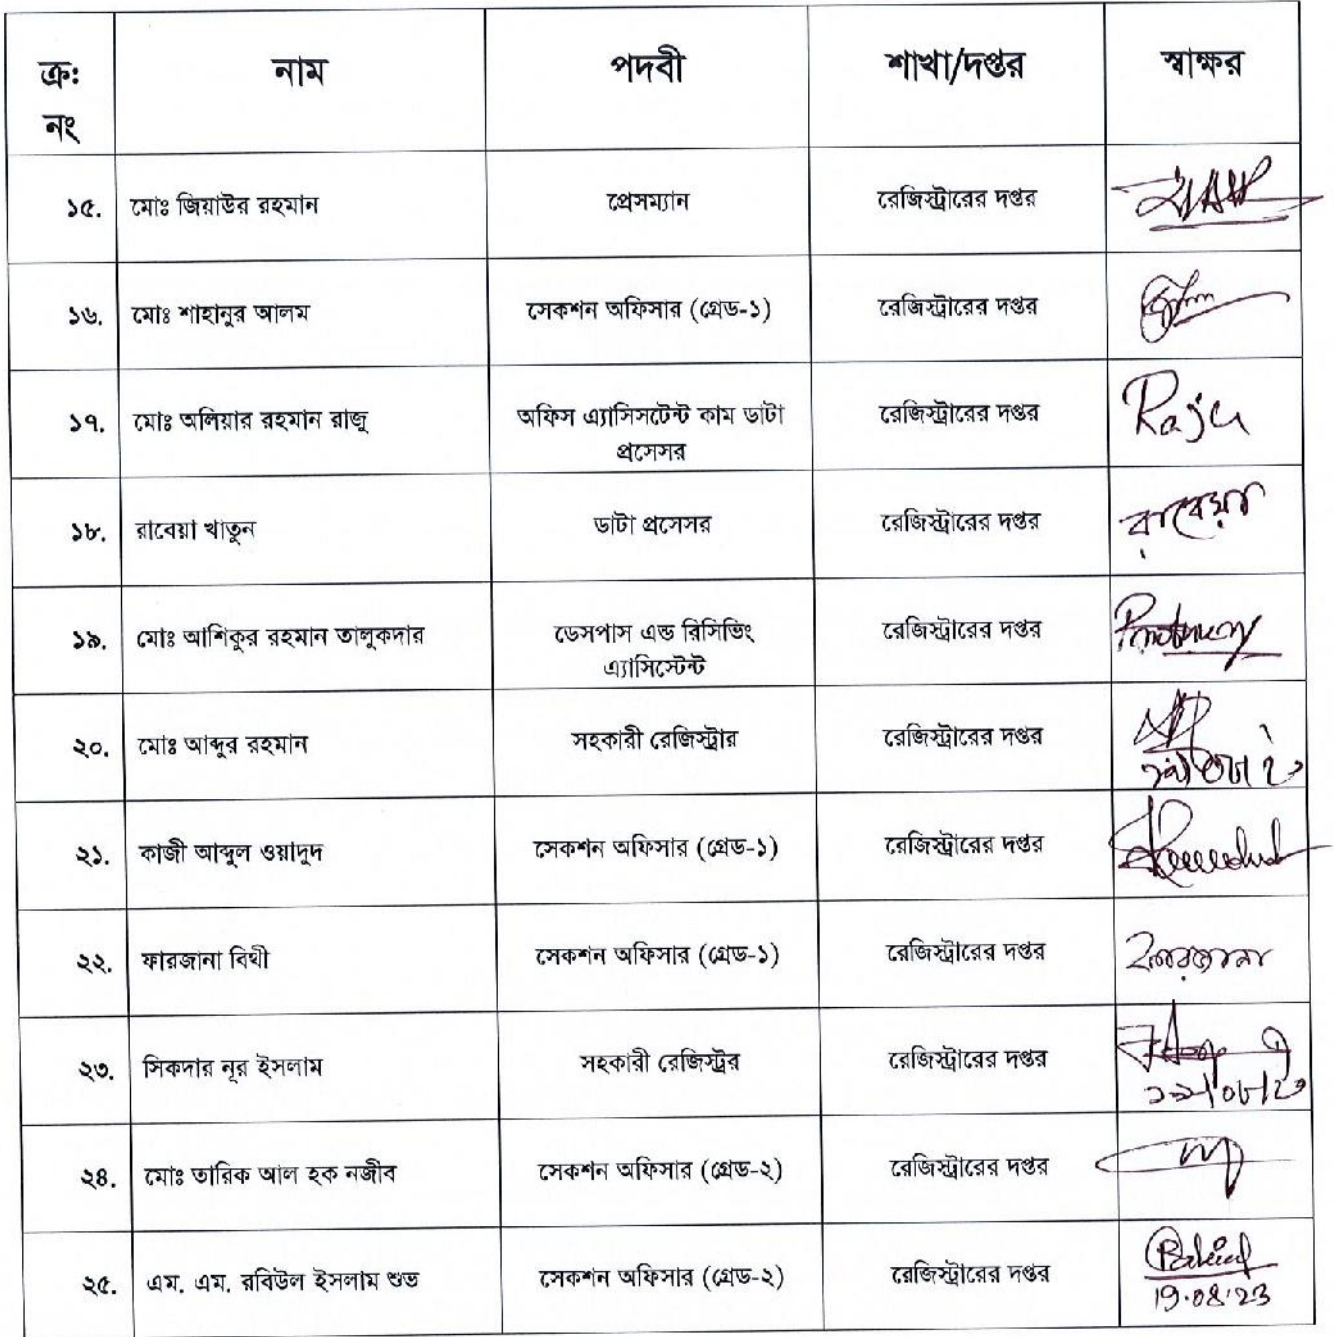 ক্রঃ নং নাম পদবী শাখা/দপ্তর স্বাক্ষর
১৫. মোঃ জিয়াউর রহমান প্রেসম্যান রেজিস্ট্রারের দপ্তর
১৬. মোঃ শাহানুর আলম সেকশন অফিসার (গ্রেড-১) রেজিস্ট্রারের দপ্তর
১৭. মোঃ অলিয়ার রহমান রাজু অফিস এ্যাসিসটেন্ট কাম ডাটা রেজিস্ট্রারের দপ্তর Raju
প্রসেসর
১৮. রাবেয়া খাতুন ডাটা প্রসেসর রেজিস্ট্রারের দপ্তর রাবেয়া
১৯. মোঃ আশিকুর রহমান তালুকদার ডেসপাস এন্ড রিসিভিং রেজিস্ট্রারের দপ্তর
এ্যাসিস্টেন্ট
২০. মোঃ আব্দুর রহমান সহকারী রেজিস্ট্রার রেজিস্ট্রারের দপ্তর
২১. কাজী আব্দুল ওয়াদুদ সেকশন অফিসার (গ্রেড-১) রেজিস্ট্রারের দপ্তর
২২. ফারজানা বিথী সেকশন অফিসার (গ্রেড-১) রেজিস্ট্রারের দপ্তর ফারজানা
২৩. সিকদার নূর ইসলাম সহকারী রেজিস্ট্রর রেজিস্ট্রারের দপ্তর
২৪. মোঃ তারিক আল হক নজীব সেকশন অফিসার (গ্রেড-২) রেজিস্ট্রারের দপ্তর
২৫. এম. এম. রবিউল ইসলাম শুভ সেকশন অফিসার (গ্রেড-২) রেজিস্ট্রারের দপ্তর
19.08.23